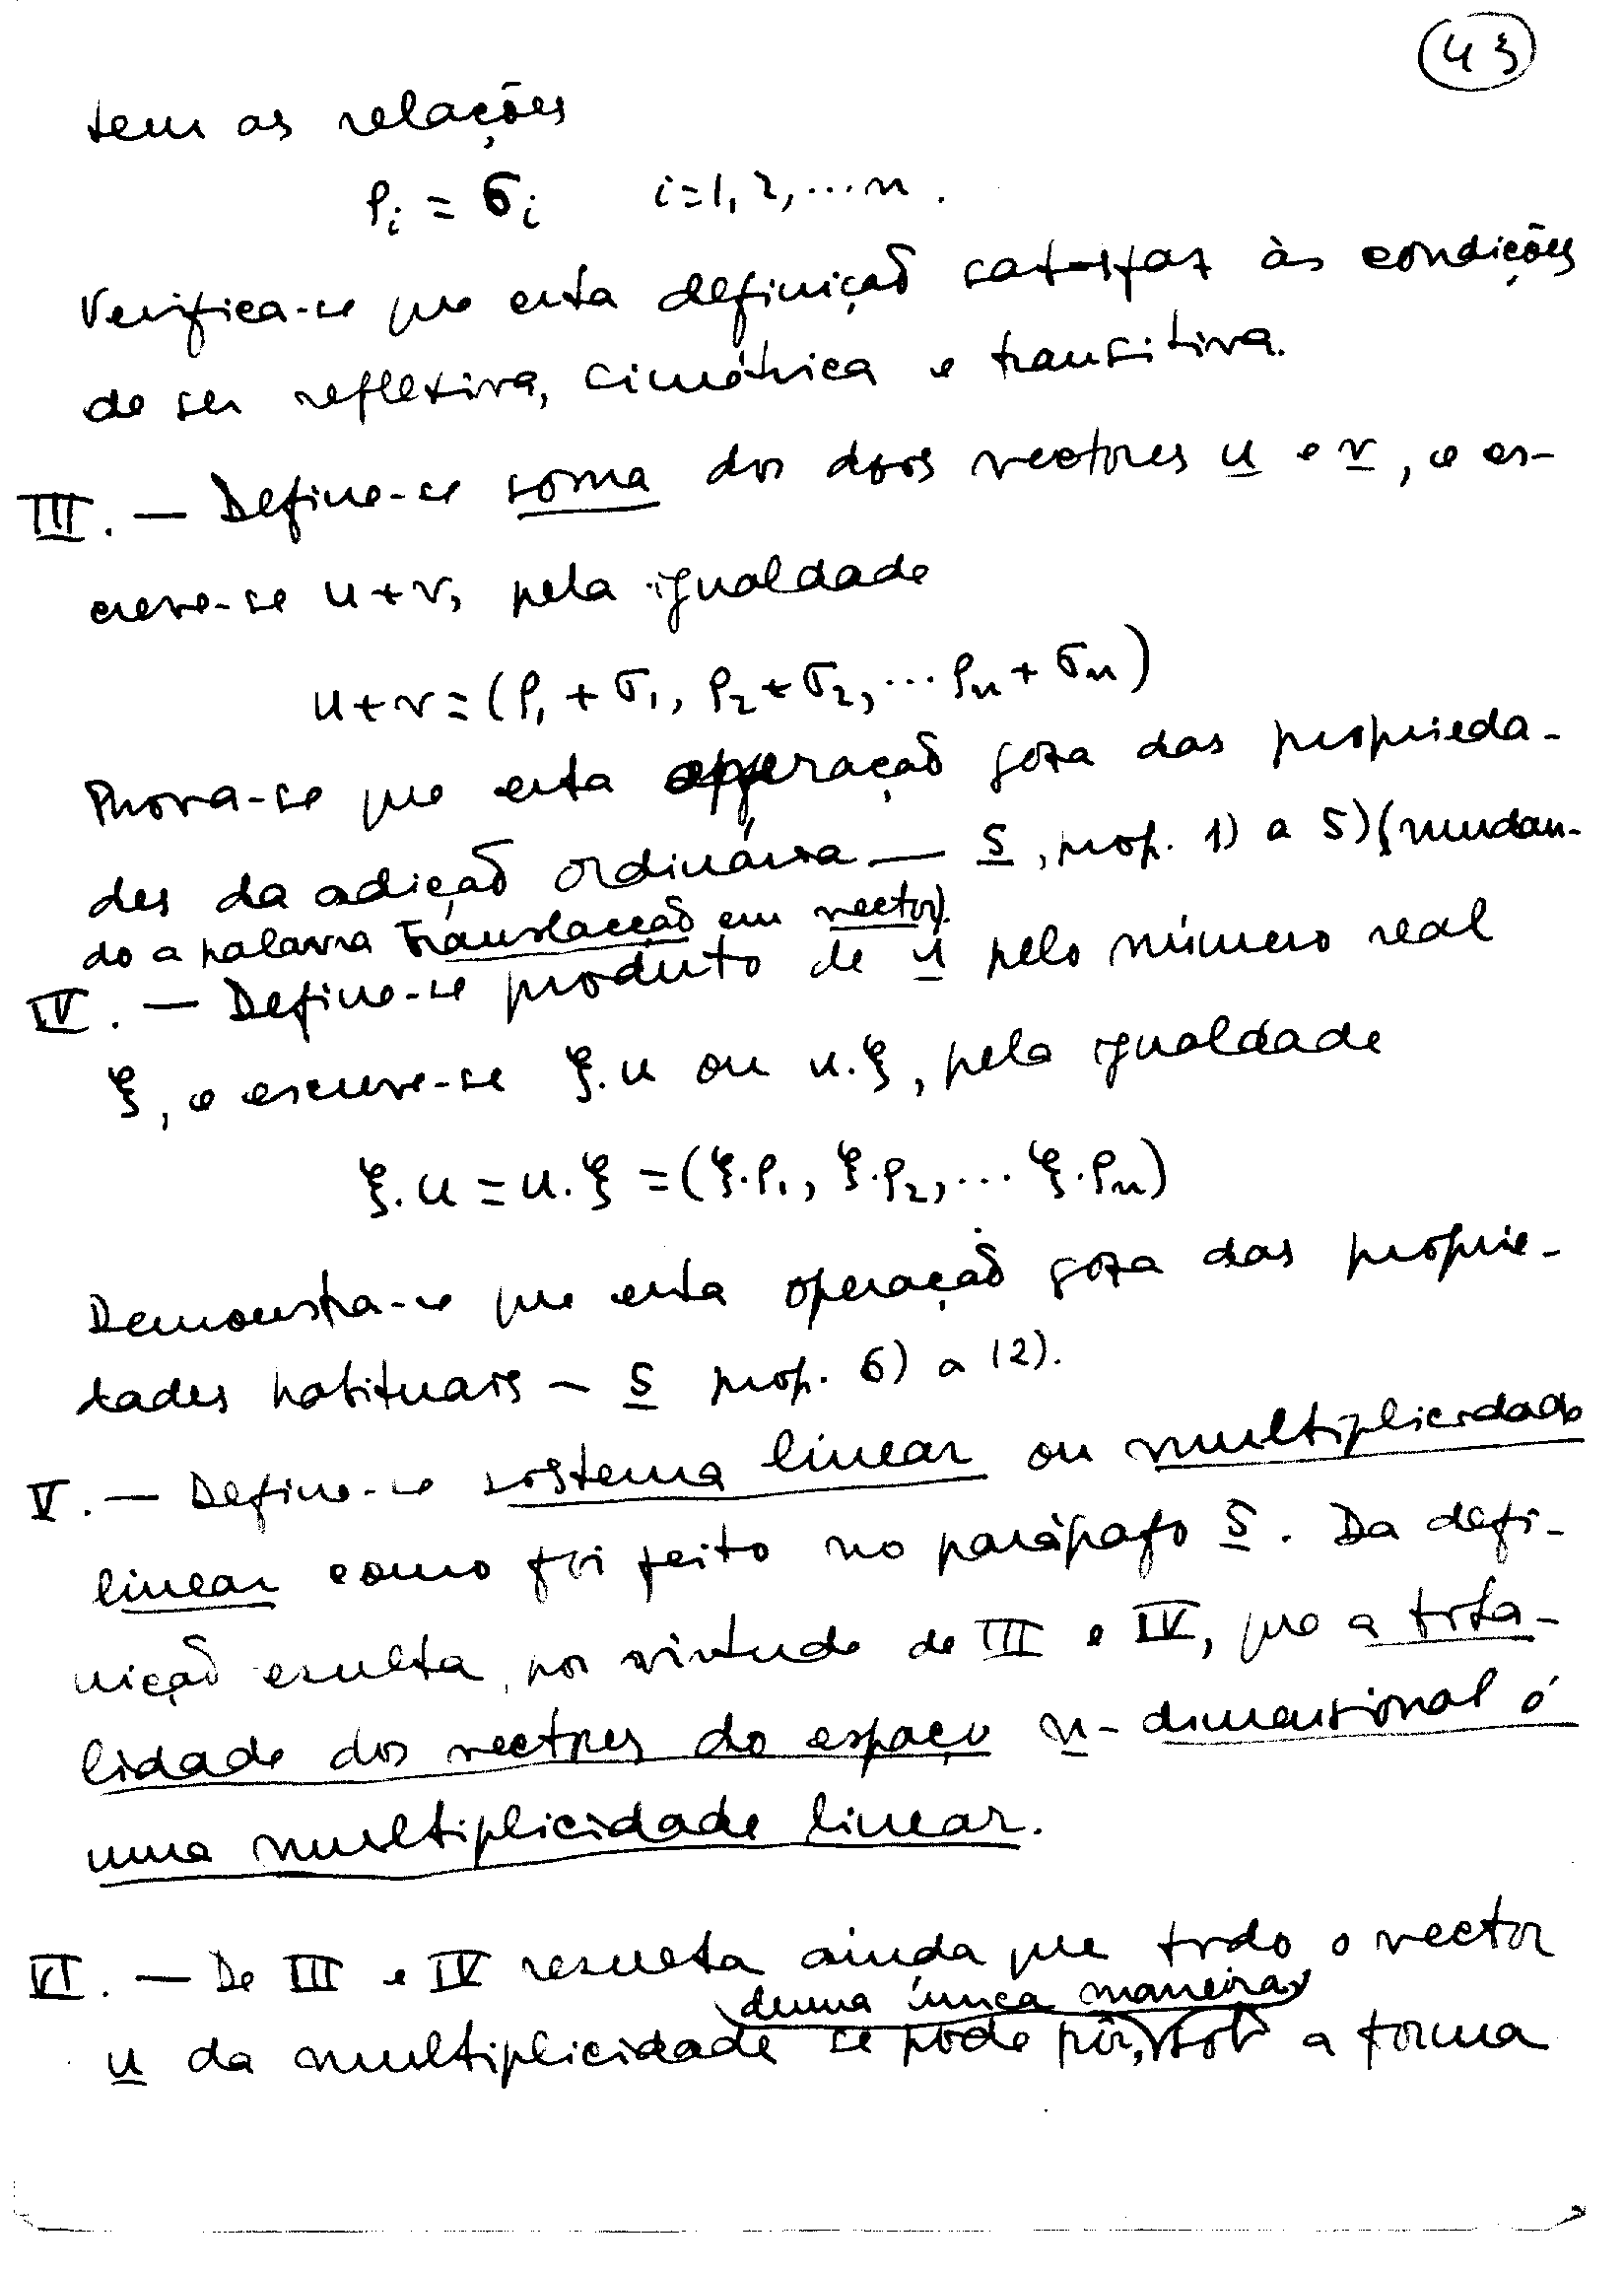 43
tem as relações
ρi = σi i=1, 2, ... n.
Verifica-se que esta definição satisfaz às condições
de ser reflexiva, simétrica e transitiva.
III. — Define-se soma dos dois vectores u e v, e es-
creve-se u+v, pela igualdade
u+v=(ρ1 + σ1, ρ2+σ2, ... ρn + σn)
Prova-se que esta operação goza das proprieda-
des da adição ordinária — 5, prop. 1) a 5) (mudan-
do a palavra translacção em vector).
IV. — Define-se produto de u pelo número real
ξ, e escreve-se ξ.u ou u.ξ, pela igualdade
ξ.u = u.ξ = (ξ.ρ1, ξ.ρ2, ... ξ.ρn)
Demonstra-se que esta operação goza das proprie-
dades habituais — 5 prop. 6) a 12).
V. — Define-se sistema linear ou multiplicidade
linear como foi feito no parágrafo 5. Da defi-
nição esulta, por virtude de III e IV, que a tota-
lidade dos vectores do espaço n-dimensional é
uma multiplicidade linear.
VI. — De III e IV resulta ainda que todo o vector
duma única maneira,
u da multiplicidade se pode pôr, sob a forma